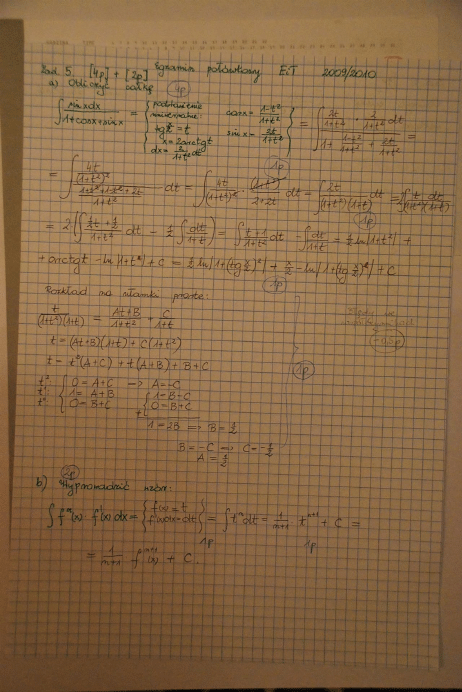 Zad. 5 [4p] + [2p] Egzamin połówkowy EiT 2009/2010
a) Obliczyć całkę 4p
∫ sinxdx / (1+cosx+sinx) = { podstawienie uniwersalne: tg x/2 = t x = 2arctgt dx = 2/(1+t²) dt cosx = (1-t²)/(1+t²) sinx = 2t/(1+t²) } = ∫ (2t/(1+t²) · 2/(1+t²) dt) / (1 + (1-t²)/(1+t²) + 2t/(1+t²)) =
= ∫ (4t/(1+t²)²) / ((1+t²+1-t²+2t)/(1+t²)) dt = ∫ 4t/(1+t²)² · (1+t²)/(2+2t) dt = ∫ 2t/((1+t²)(1+t)) dt = 2∫ t dt/((1+t²)(1+t)) 1p 1p
= 2(∫ (½t + ½)/(1+t²) dt - ½ ∫ dt/(1+t)) = ∫ (t+1)/(1+t²) dt - ∫ dt/(1+t) = ½ ln|1+t²| +
+ arctgt - ln|1+t| + C = ½ ln|1+(tg x/2)²| + x/2 - ln|1+tg x/2| + C 1p
Rozkład na ułamki proste:
t/((1+t²)(1+t)) = (At+B)/(1+t²) + C/(1+t)
t = (At+B)(1+t) + C(1+t²)
t = t²(A+C) + t(A+B) + B+C
t²: { 0 = A+C → A=-C
t¹: 1 = A+B { 1 = B-C
t⁰: 0 = B+C 0 = B+C
1 = 2B ⇒ B = ½
B = -C ⇒ C = -½
A = ½
1p
b) Wyprowadzić wzór: 2p
∫ fⁿ(x) · f'(x) dx = { f(x) = t f'(x)dx = dt } = ∫ tⁿ dt = 1/(n+1) tⁿ⁺¹ + C =
1p 1p
= 1/(n+1) fⁿ⁺¹(x) + C.